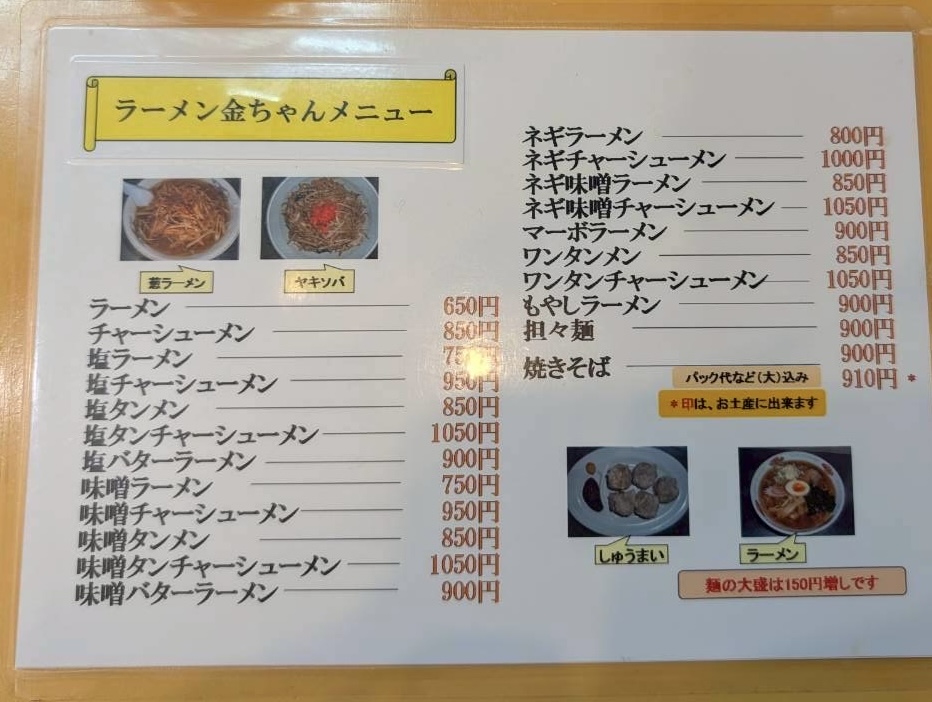 ラーメン金ちゃんメニュー
葱ラーメン
ヤキソバ
ラーメン 650円
チャーシューメン 850円
塩ラーメン 75 円
塩チャーシューメン 950円
塩タンメン 850円
塩タンチャーシューメン 1050円
塩バターラーメン 900円
味噌ラーメン 750円
味噌チャーシューメン 950円
味噌タンメン 850円
味噌タンチャーシューメン 1050円
味噌バターラーメン 900円
ネギラーメン 800円
ネギチャーシューメン 1000円
ネギ味噌ラーメン 850円
ネギ味噌チャーシューメン 1050円
マーボラーメン 900円
ワンタンメン 850円
ワンタンチャーシューメン 1050円
もやしラーメン 900円
担々麺 900円
焼きそば 900円
パック代など(大)込み 910円 *
*印は、お土産に出来ます
しゅうまい
ラーメン
麺の大盛は150円増しです